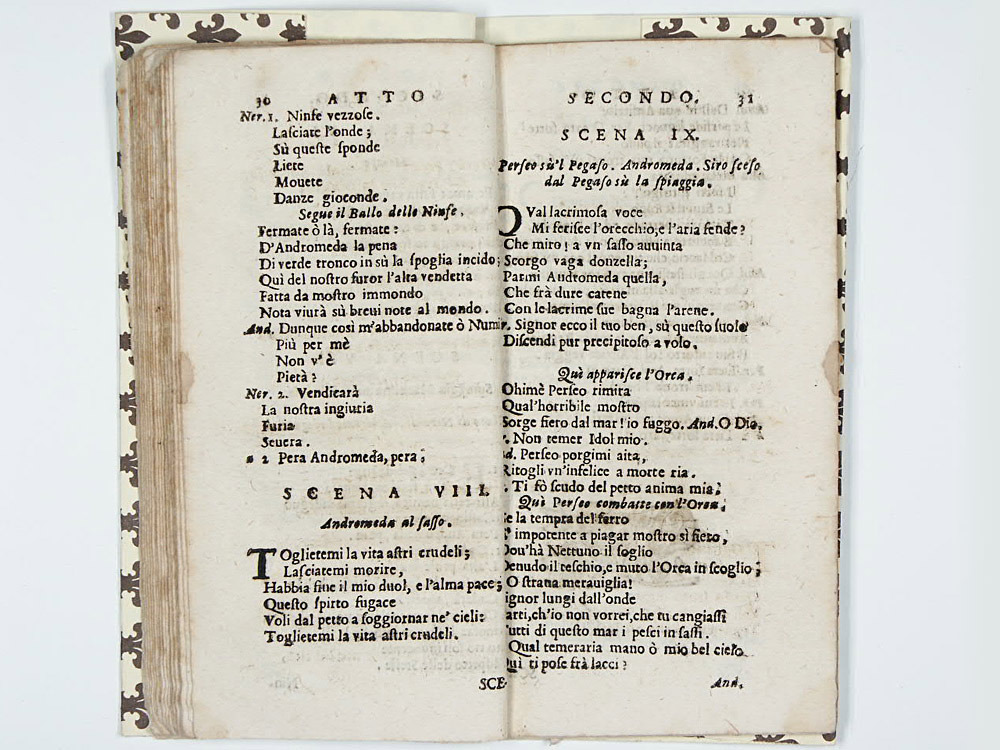 30 ATTO
Ner. 1. Ninfe vezzose.
Lasciate l'onde;
Sù queste sponde
Liete
Mouete
Danze gioconde.
Segue il Ballo delle Ninfe.
Fermate ò là, fermate:
D'Andromeda la pena
Di verde tronco in sù la spoglia incido;
Quì del nostro furor l'alta vendetta
Fatta da mostro immondo
Nota viurà sù breui note al mondo.
And. Dunque così m'abbandonate ò Numi
Più per mè
Non v'è
Pietà?
Ner. 2. Vendicarà
La nostra ingiuria
Furia
Seuera.
a 2 Pera Andromeda, pera;
SCENA VIII.
Andromeda al sasso.
TOglietemi la vita astri crudeli;
Lasciatemi morire,
Habbia fine il mio duol, e l'alma pace;
Questo spirto fugace
Voli dal petto a soggiornar ne' cieli:
Toglietemi la vita astri crudeli.
SCE-
SECONDO. 31
SCENA IX.
Perseo sù'l Pegaso. Andromeda. Siro sceso
dal Pegaso sù la spiaggia.
QVal lacrimosa voce
Mi ferisce l'orecchio, e l'aria fende?
Che miro! a vn sasso auuinta
Scorgo vaga donzella;
Parmi Andromeda quella,
Che frà dure catene
Con le lacrime sue bagna l'arene.
r. Signor ecco il tuo ben, sù questo suolo
Discendi pur precipitoso a volo.
Quì apparisce l'Orca.
Ohimè Perseo rimira
Qual'horribile mostro
Sorge fiero dal mar! io fuggo. And. O Dio.
r. Non temer Idol mio.
d. Perseo porgimi aita,
Ritogli vn'infelice a morte ria.
. Ti fò scudo del petto anima mia;
Quì Perseo combatte con l'Orca;
Se la tempra del ferro
E' impotente a piagar mostro sì fiero,
Dou'hà Nettuno il soglio
Denudo il teschio, e muto l'Orca in scoglio;
O strana merauiglia!
ignor lungi dall'onde
arti, ch'io non vorrei, che tu cangiassi
Tutti di questo mar i pesci in sassi.
Qual temeraria mano ò mio bel cielo
Quì ti pose frà lacci?
And.